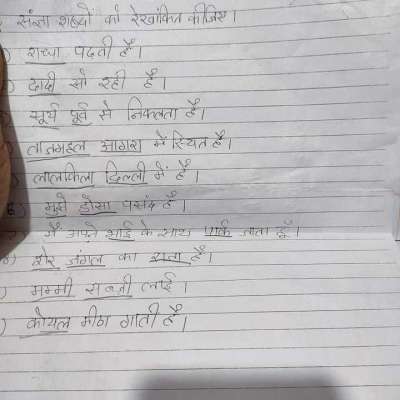 संज्ञा शब्दों को रेखांकित कीजिए।
पढ़ती है।
दादी सो रही है।
सूर्य पूर्व से निकलता है।
ताजमहल आगरा में स्थित है।
लालकिला दिल्ली में है।
6) मुझे डोसा पसंद है।
मैं अपने भाई के साथ पार्क जाता हूँ।
शेर जंगल का राजा है।
मम्मी सब्जी लाई।
कोयल गाती है।